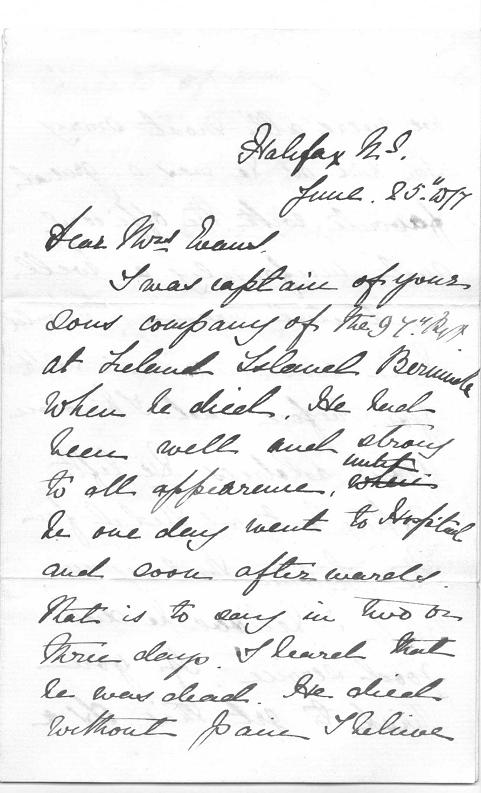 Halifax N.S.
June. 25.th
Dear Mrs Evans.
I was captain of your
sons company of the 97th Regt
at Ireland Island Bermuda
when he died. He had
been well and strong
to all appearence, until
he one day went to Hospital
and soon afterwards.
that is to say in two or
three days. I heard that
he was dead. He died
without pain I believe